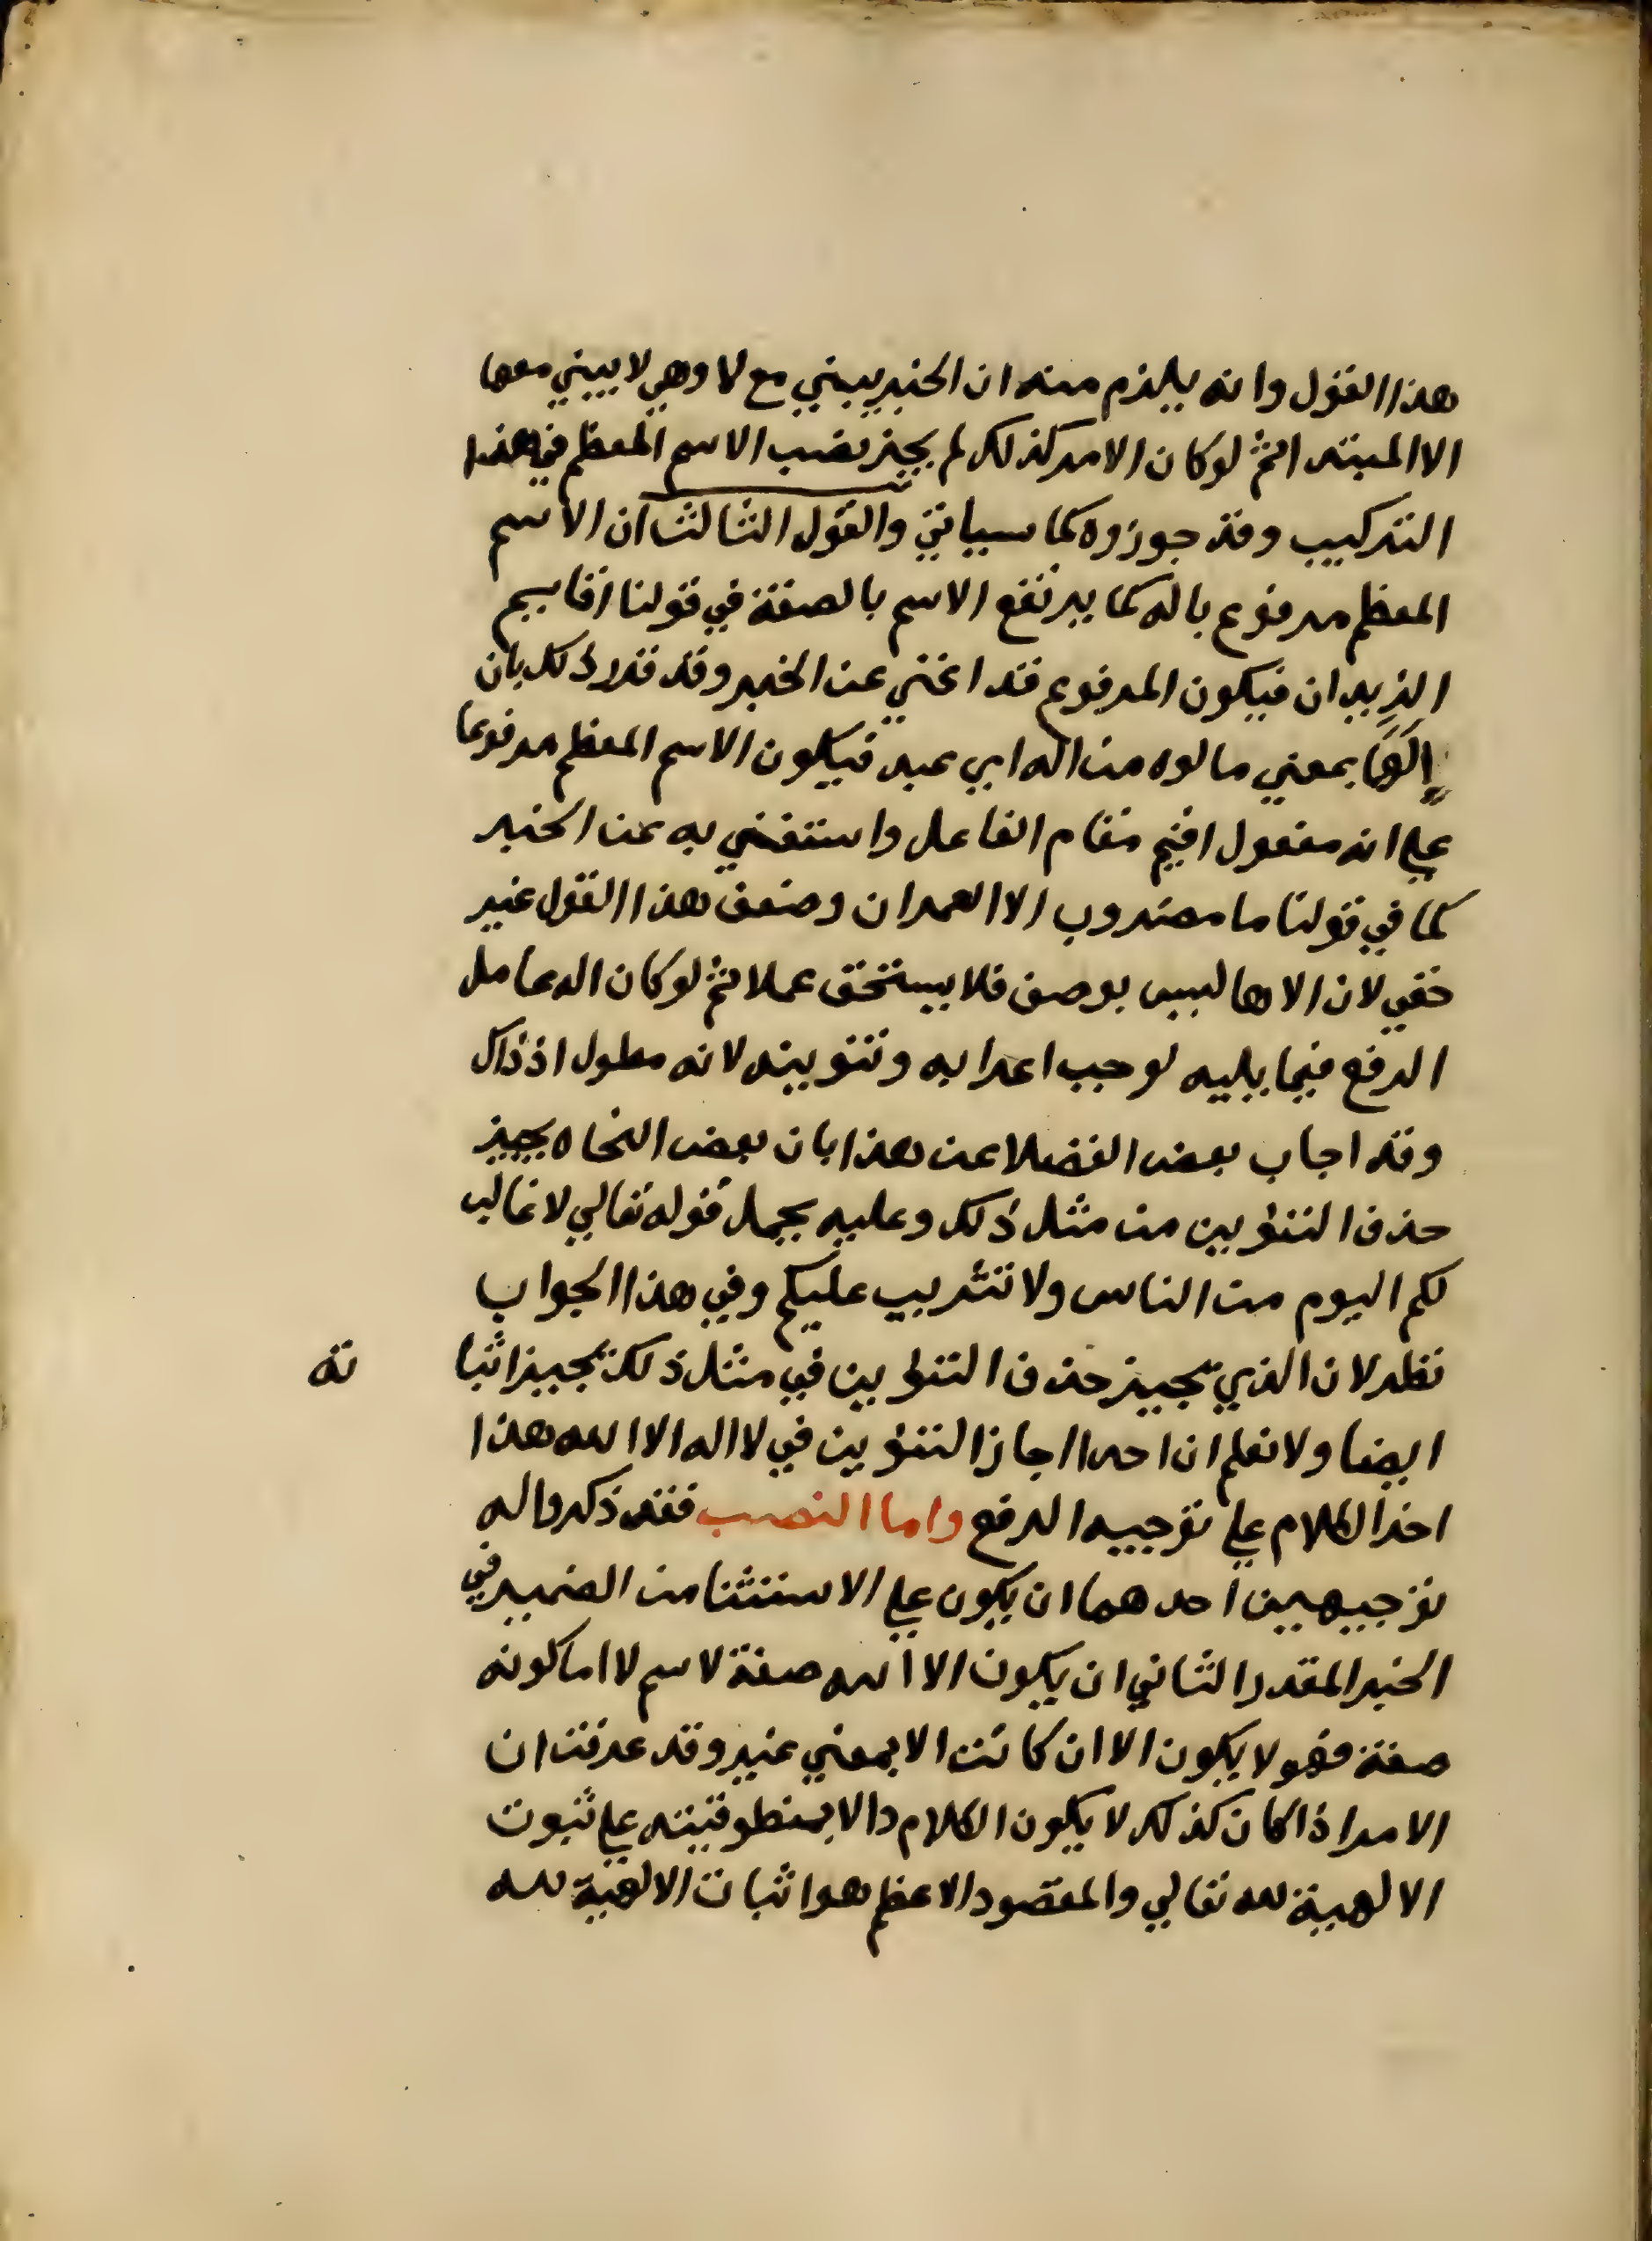 هذا القول وانه يلزم منه ان الخبر يبني مع لا وهي لا يبني معها
الا المبتدا ثم لو كان الامر كذلك لم يجز نصب الاسم المعظم في هذا
التركيب وقد جوزوه كما سياتي والقول الثالث ان الاسم
المعظم مرفوع باله كما يرتفع الاسم بالصفة في قولنا اقايم
الزيدان فيكون المرفوع قد اغني عن الخبر وقد قدر ذلك بان
إلَهًا بمعني مالوه من اله اي عبد فيكون الاسم المعظم مرفوعا
علي انه مفعول اقيم مقام الفاعل واستغني به عن الخبر
كما في قولنا ما مضروب الا العمران وضعف هذا القول غير
خفي لان الاها ليس بوصف فلا يستحق عملا ثم لو كان اله عامل
الرفع فيما يليه لوجب اعرابه وتنوينه لانه مطول اذ ذاك
وقد اجاب بعض الفضلا عن هذا بان بعض النحاه يجيز
حذف التنوين من مثل ذلك وعليه يحمل قوله تعالي لا غالب
لكم اليوم من الناس ولا تثريب عليكم وفي هذا الجواب
نظر لان الذي يجيز حذف التنوين في مثل ذلك يجيز اثبا ته
ايضا ولا نعلم ان احدا اجاز التنوين في لا اله الا الله هذا
اخر الكلام علي توجيه الرفع واما النصب فقد ذكروا له
توجيهين احدهما ان يكون علي الاستثنا من الضمير في
الخبر المقدر الثاني ان يكون الا الله صفة لاسم لا اما كونه
صفة فهو لا يكون الا ان كانت الا بمعني غير وقد عرفت ان
الامر اذا كان كذلك لا يكون الكلام دالا بمنطوقيته علي ثبوت
الالهية لله تعالي والمقصود الاعظم هو اثبات الالهية لله